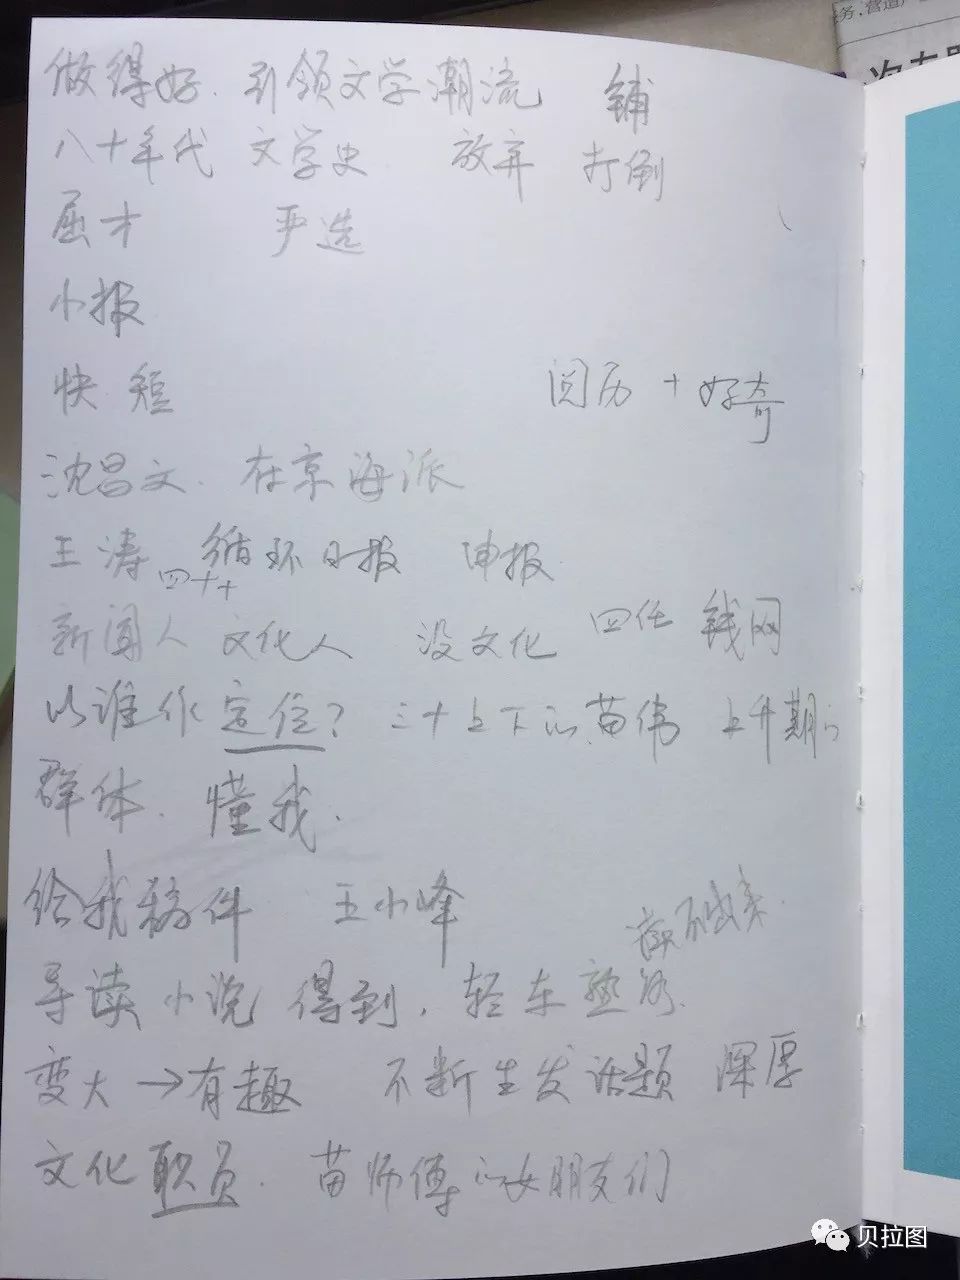 务,营造
做得好.引领文学潮流 铺
八十年代 文学史 放弃 打倒
屈才 严选
小报
快 短 阅历 + 好奇
沈昌文.在京海派
王涛 循环日报 申报
四十+
新闻人 文化人 没文化 四任 钱网
以谁作定位?三十上下的苗伟 上升期的
群体.懂我.
给我稿件 王小峰
导读小说 得到,轻车熟路.
变大→有趣 不断生发话题 深厚
文化职员.苗师傅的女朋友们
贝拉图